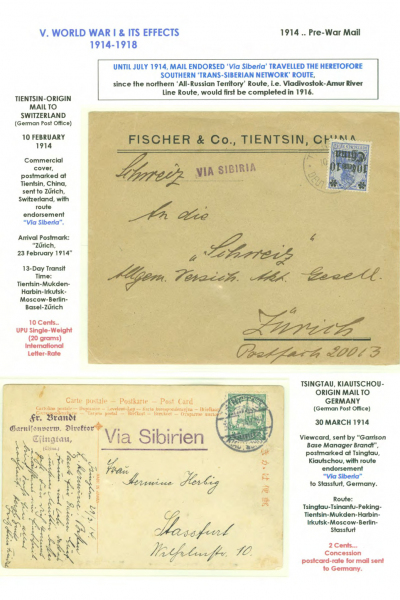 V. WORLD WAR I & ITS EFFECTS
1914-1918
1914 .. Pre-War Mail
UNTIL JULY 1914, MAIL ENDORSED 'Via Siberia' TRAVELLED THE HERETOFORE
SOUTHERN 'TRANS-SIBERIAN NETWORK' ROUTE,
since the northern 'All-Russian Territory' Route, i.e. Vladivostok-Amur River
Line Route, would first be completed in 1916.
TIENTSIN-ORIGIN
MAIL TO
SWITZERLAND
(German Post Office)
10 FEBRUARY
1914
Commercial
cover,
postmarked at
Tientsin, China,
sent to Zürich,
Switzerland, with
route
endorsement
"Via Siberia".
Arrival Postmark:
"Zürich,
23 February 1914"
13-Day Transit
Time:
Tientsin-Mukden-
Harbin-Irkutsk-
Moscow-Berlin-
Basel-Zürich
10 Cents..
UPU Single-Weight
(20 grams)
International
Letter-Rate
FISCHER & Co., TIENTSIN, CHINA
Schweiz
VIA SIBIRIA
China
An die
„Schweiz"
Allgem. Versich. Akt. Gesell.
Zürich
Postfach 20013
Carte postale - Postkarte - Post Card
Fr. Brandt
Garnisonverw. Direktor
Tsingtau,
Via Sibirien
Frau
Hermine Herbig
Stassfurt
TSINGTAU, KIAUTSCHOU-
ORIGIN MAIL TO
GERMANY
(German Post Office)
30 MARCH 1914
Viewcard, sent by "Garrison
Base Manager Brandt",
postmarked at Tsingtau,
Kiautschou, with route
endorsement
"Via Siberia"
to Stassfurt, Germany.
Route:
Tsingtau-Tsinantu-Peking-
Tientsin-Mukden-Harbin-
Irkutsk-Moscow-Berlin-
Stassfurt
2 Cents...
Concession
postcard-rate for mail sent
to Germany.